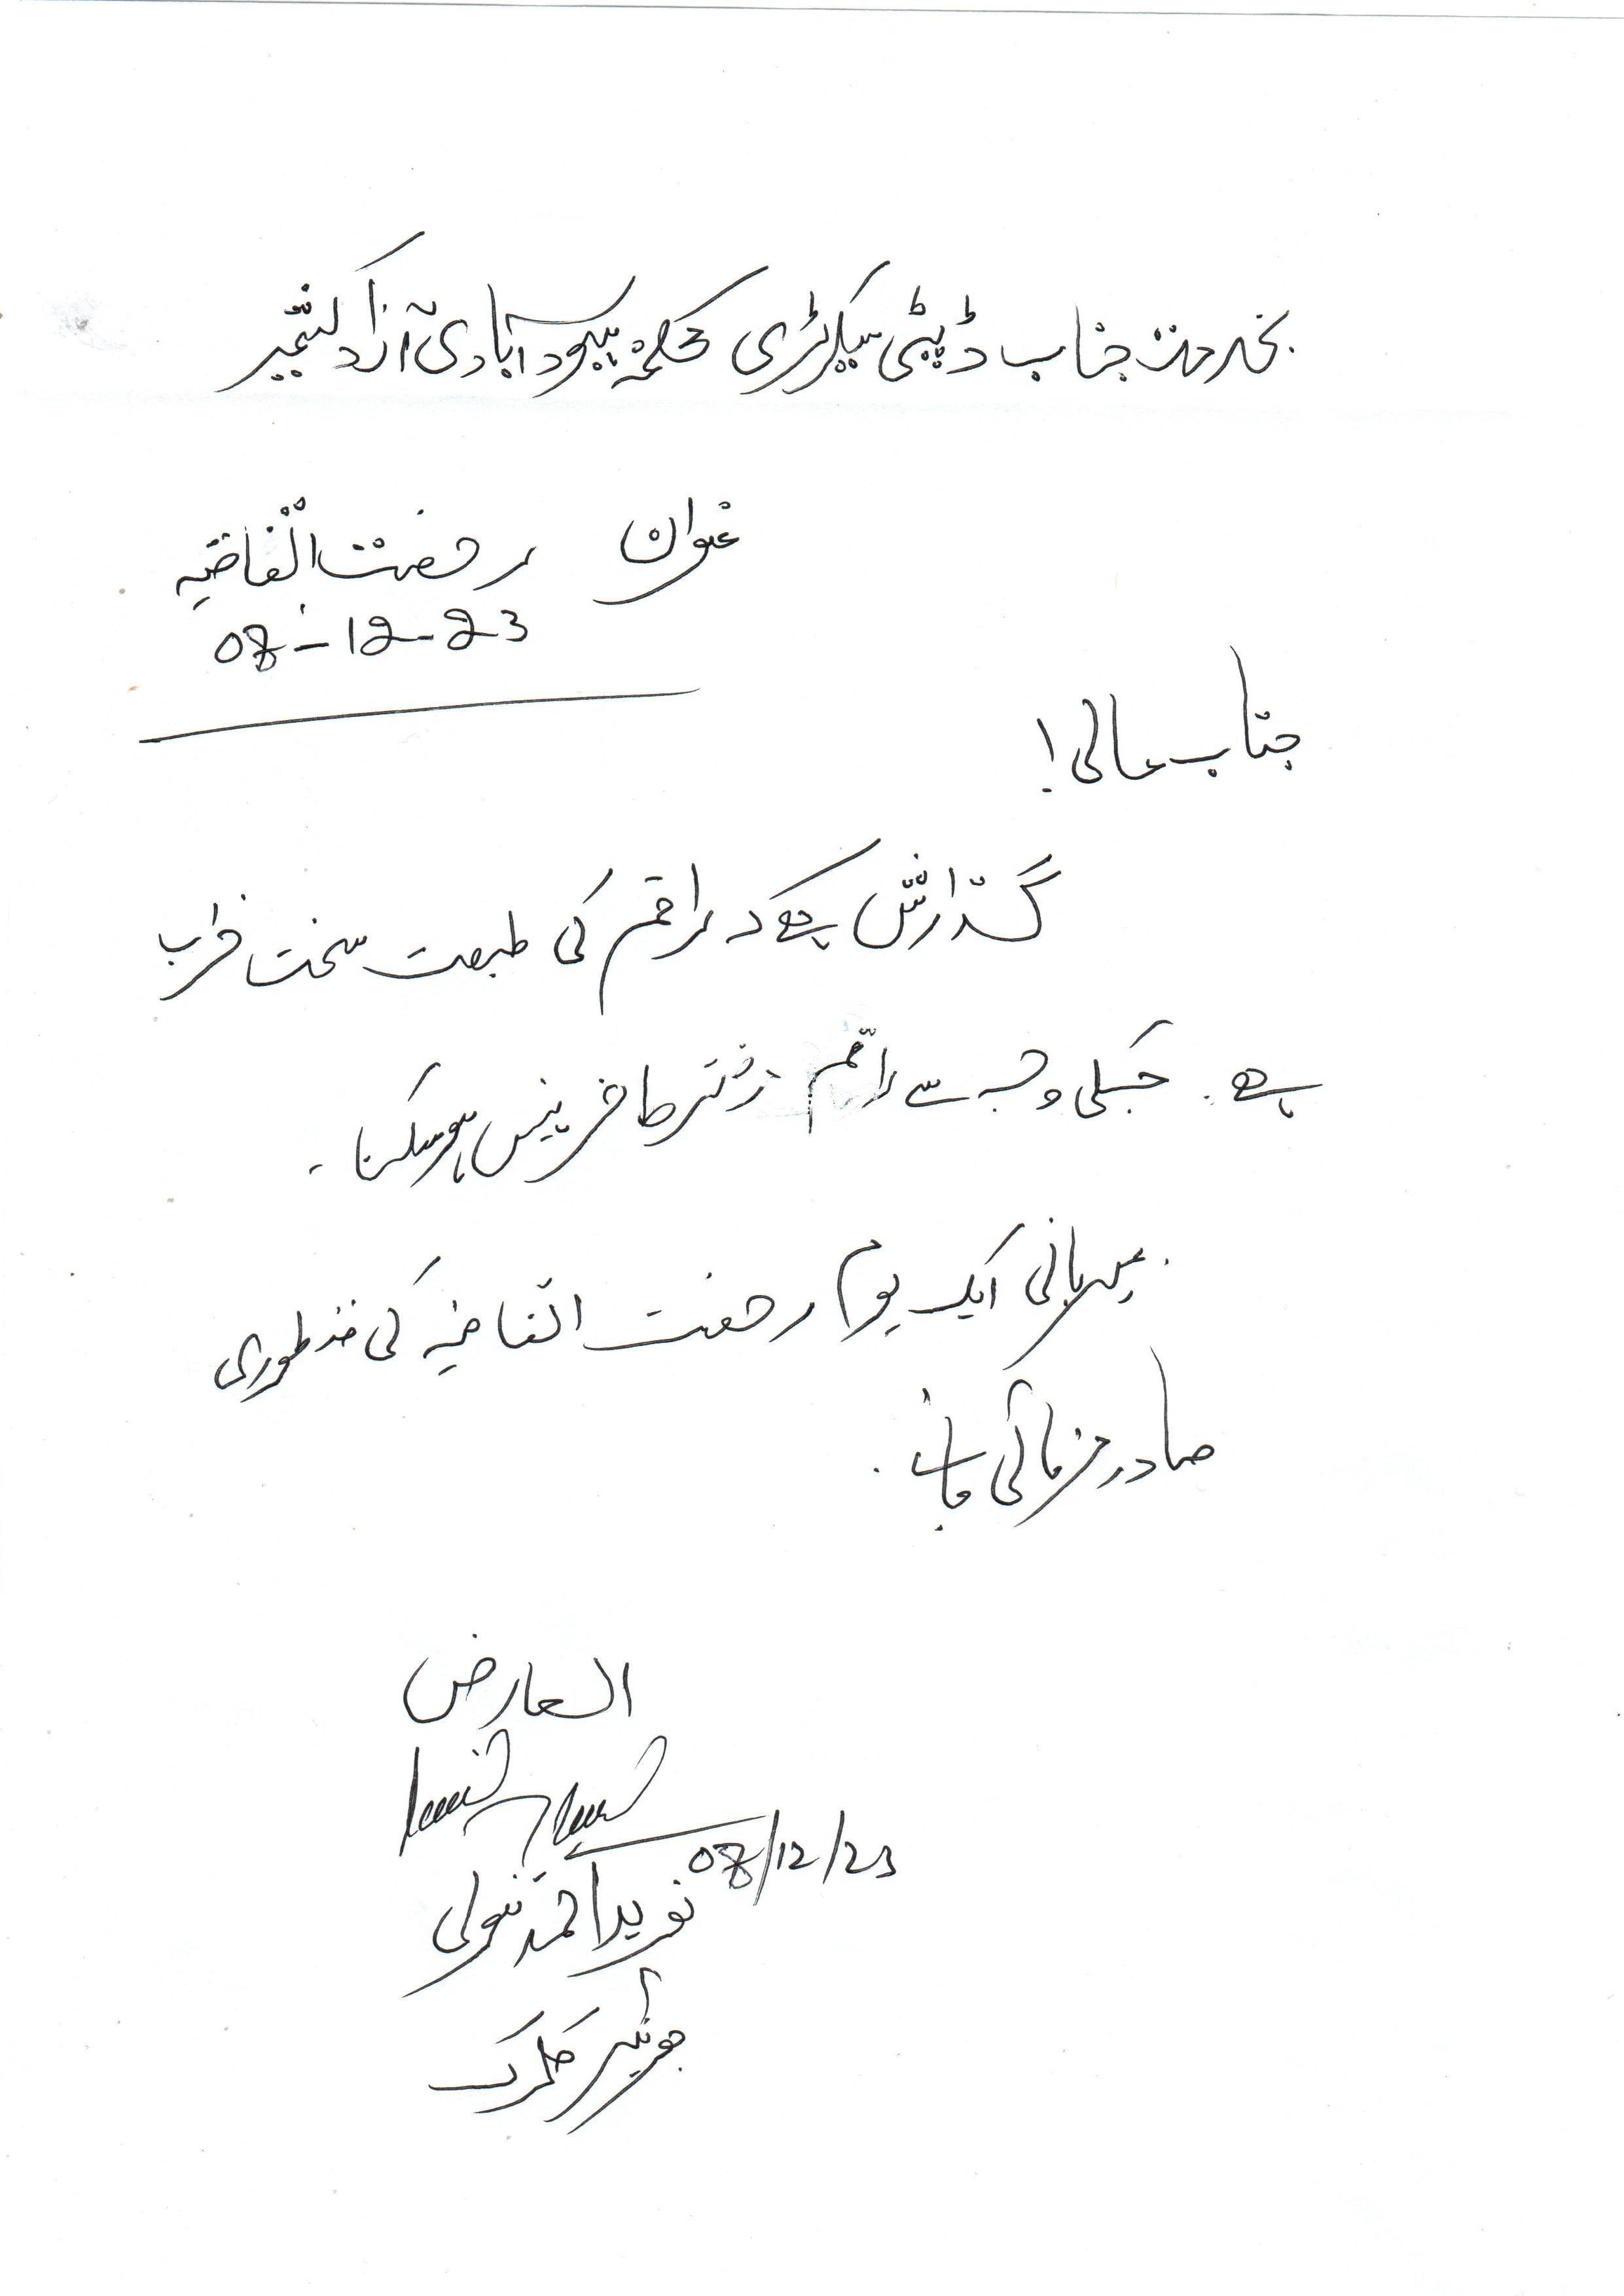 بخدمت جناب ڈپٹی سیکرٹری محکمہ بہبود آبادی آزاد کشمیر
عنوان رخصت اتفاقیہ
08-12-23
جناب عالی!
گذارش ہے کہ راقم کی طبعیت سخت خراب
ہے۔ جسکی وجہ سے راقم دفتر حاضر نہیں ہو سکتا۔
مہربانی ایک یوم رخصت اتفاقیہ کی منظوری
صادر فرمائی جائے۔
العارض
08/12/23
نوید احمد
جونئیر کلرک